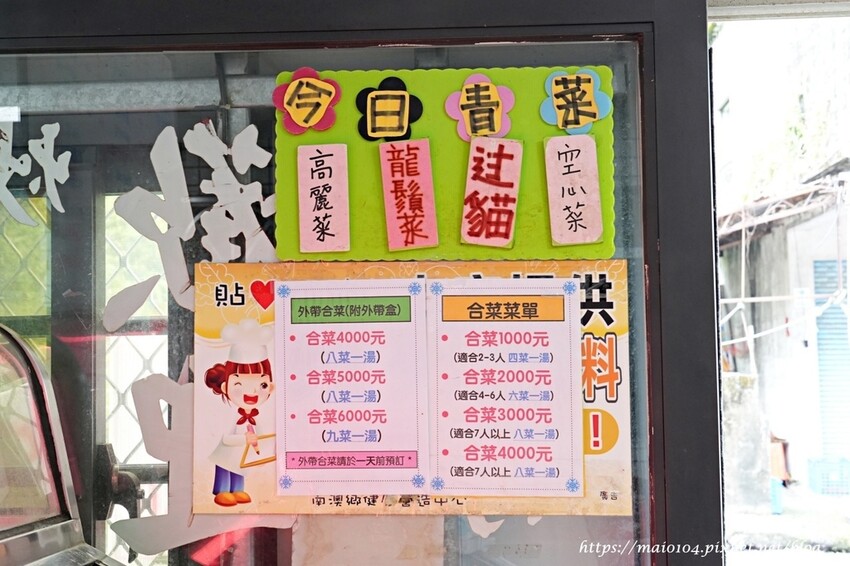 今日青菜
高麗菜
龍鬚菜
过貓
空心菜
貼
供
料
!
外帶合菜(附外帶盒)
• 合菜4000元
(八菜一湯)
• 合菜5000元
(八菜一湯)
• 合菜6000元
(九菜一湯)
*外帶合菜請於一天前預訂*
合菜菜單
• 合菜1000元
(適合2-3人 四菜一湯)
• 合菜2000元
(適合4-6人 六菜一湯)
• 合菜3000元
(適合7人以上 八菜一湯)
• 合菜4000元
(適合7人以上 八菜一湯)
南澳鄉健
營造中心
廣告